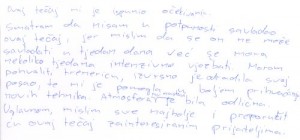 Ovaj tečaj mi je ispunio očekivanja.
Smatram da nisam u potpunosti svladao
ovaj tečaj, jer mislim da se on ne može
savladati u tjedan dana već se mora
nekoliko tjedana intenzivno vježbati. Moram
pohvaliti trenericu, izvrsno je odradila svoj
posao te mi je pomogla boljem prihvaćanju
novih tehnika. Atmosfera je bila odlična.
Uglavnom, mislim sve najbolje i preporučit
ću ovaj tečaj zainteresiranim prijateljima.